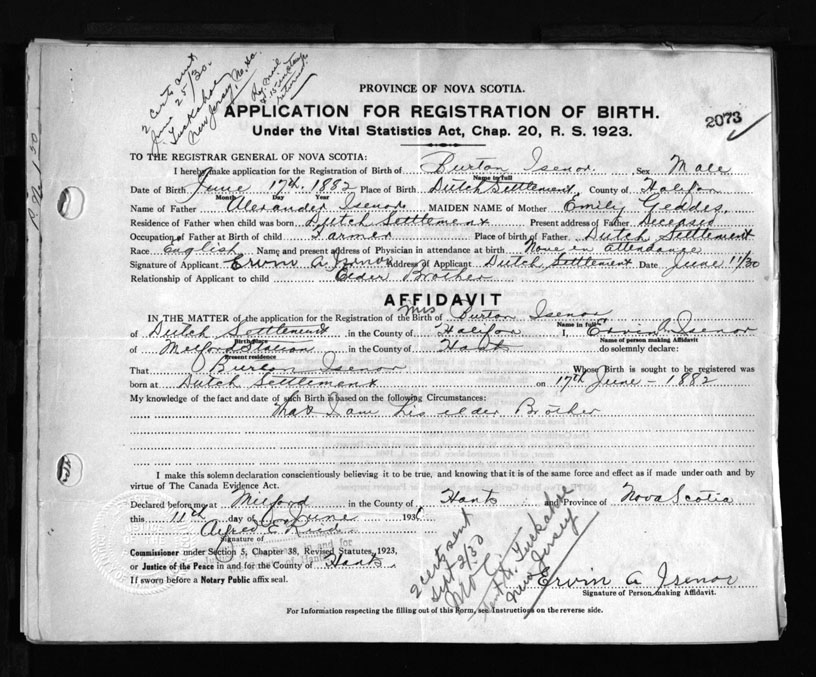 2 certs sent
June 25/30.
Tuckahoe
New Jersey
PROVINCE OF NOVA SCOTIA.
APPLICATION FOR REGISTRATION OF BIRTH.
2073
Under the Vital Statistics Act, Chap. 20, R. S. 1923.
TO THE REGISTRAR GENERAL OF NOVA SCOTIA:
I hereby make application for the Registration of Birth of Burton Isenor. Sex Male
Name in full
Date of Birth June 17th. 1882 Place of Birth Dutch Settlement, County of Halifax
Month Day Year
Name of Father Alexander Isenor MAIDEN NAME of Mother Emily Geddes.
Residence of Father when child was born Dutch Settlement Present address of Father Deceased
Occupation of Father at Birth of child Farmer Place of birth of Father Dutch Settlement
Race English Name and present address of Physician in attendance at birth None in attendance
Signature of Applicant Ervin A Isenor Address of Applicant Dutch Settlement Date June 11/30
Relationship of Applicant to child Elder Brother
AFFIDAVIT
IN THE MATTER of the application for Registration of the Birth of Burton Isenor
Name in full
of Dutch Settlement in the County of Halifax I, Ervin A Isenor
Birth Place Name of person making Affidavit
of Melford Station in the County of Hants do solemnly declare:
Present residence
That Burton Isenor Whose Birth is sought to be registered was
born at Dutch Settlement on 17th June - 1882
My knowledge of the fact and date of such Birth is based on the following Circumstances:
That I am his elder Brother
I make this solemn declaration conscientiously believing it to be true, and knowing that it is of the same force and effect as if made under oath and by
virtue of The Canada Evidence Act.
Declared before me at Melford in the County of Hants and Province of Nova Scotia
this 11th day of June 193
Alfred E
Signature of
Commissioner under Section 5, Chapter 38, Revised Statutes, 1923,
or Justice of the Peace in and for the County of Hants
If sworn before a Notary Public affix seal.
2 certs sent
Sept 2/30
Tuckahoe
New Jersey
Ervin A Isenor
Signature of Person making Affidavit.
For Information respecting the filling out of this Form, see Instructions on the reverse side.